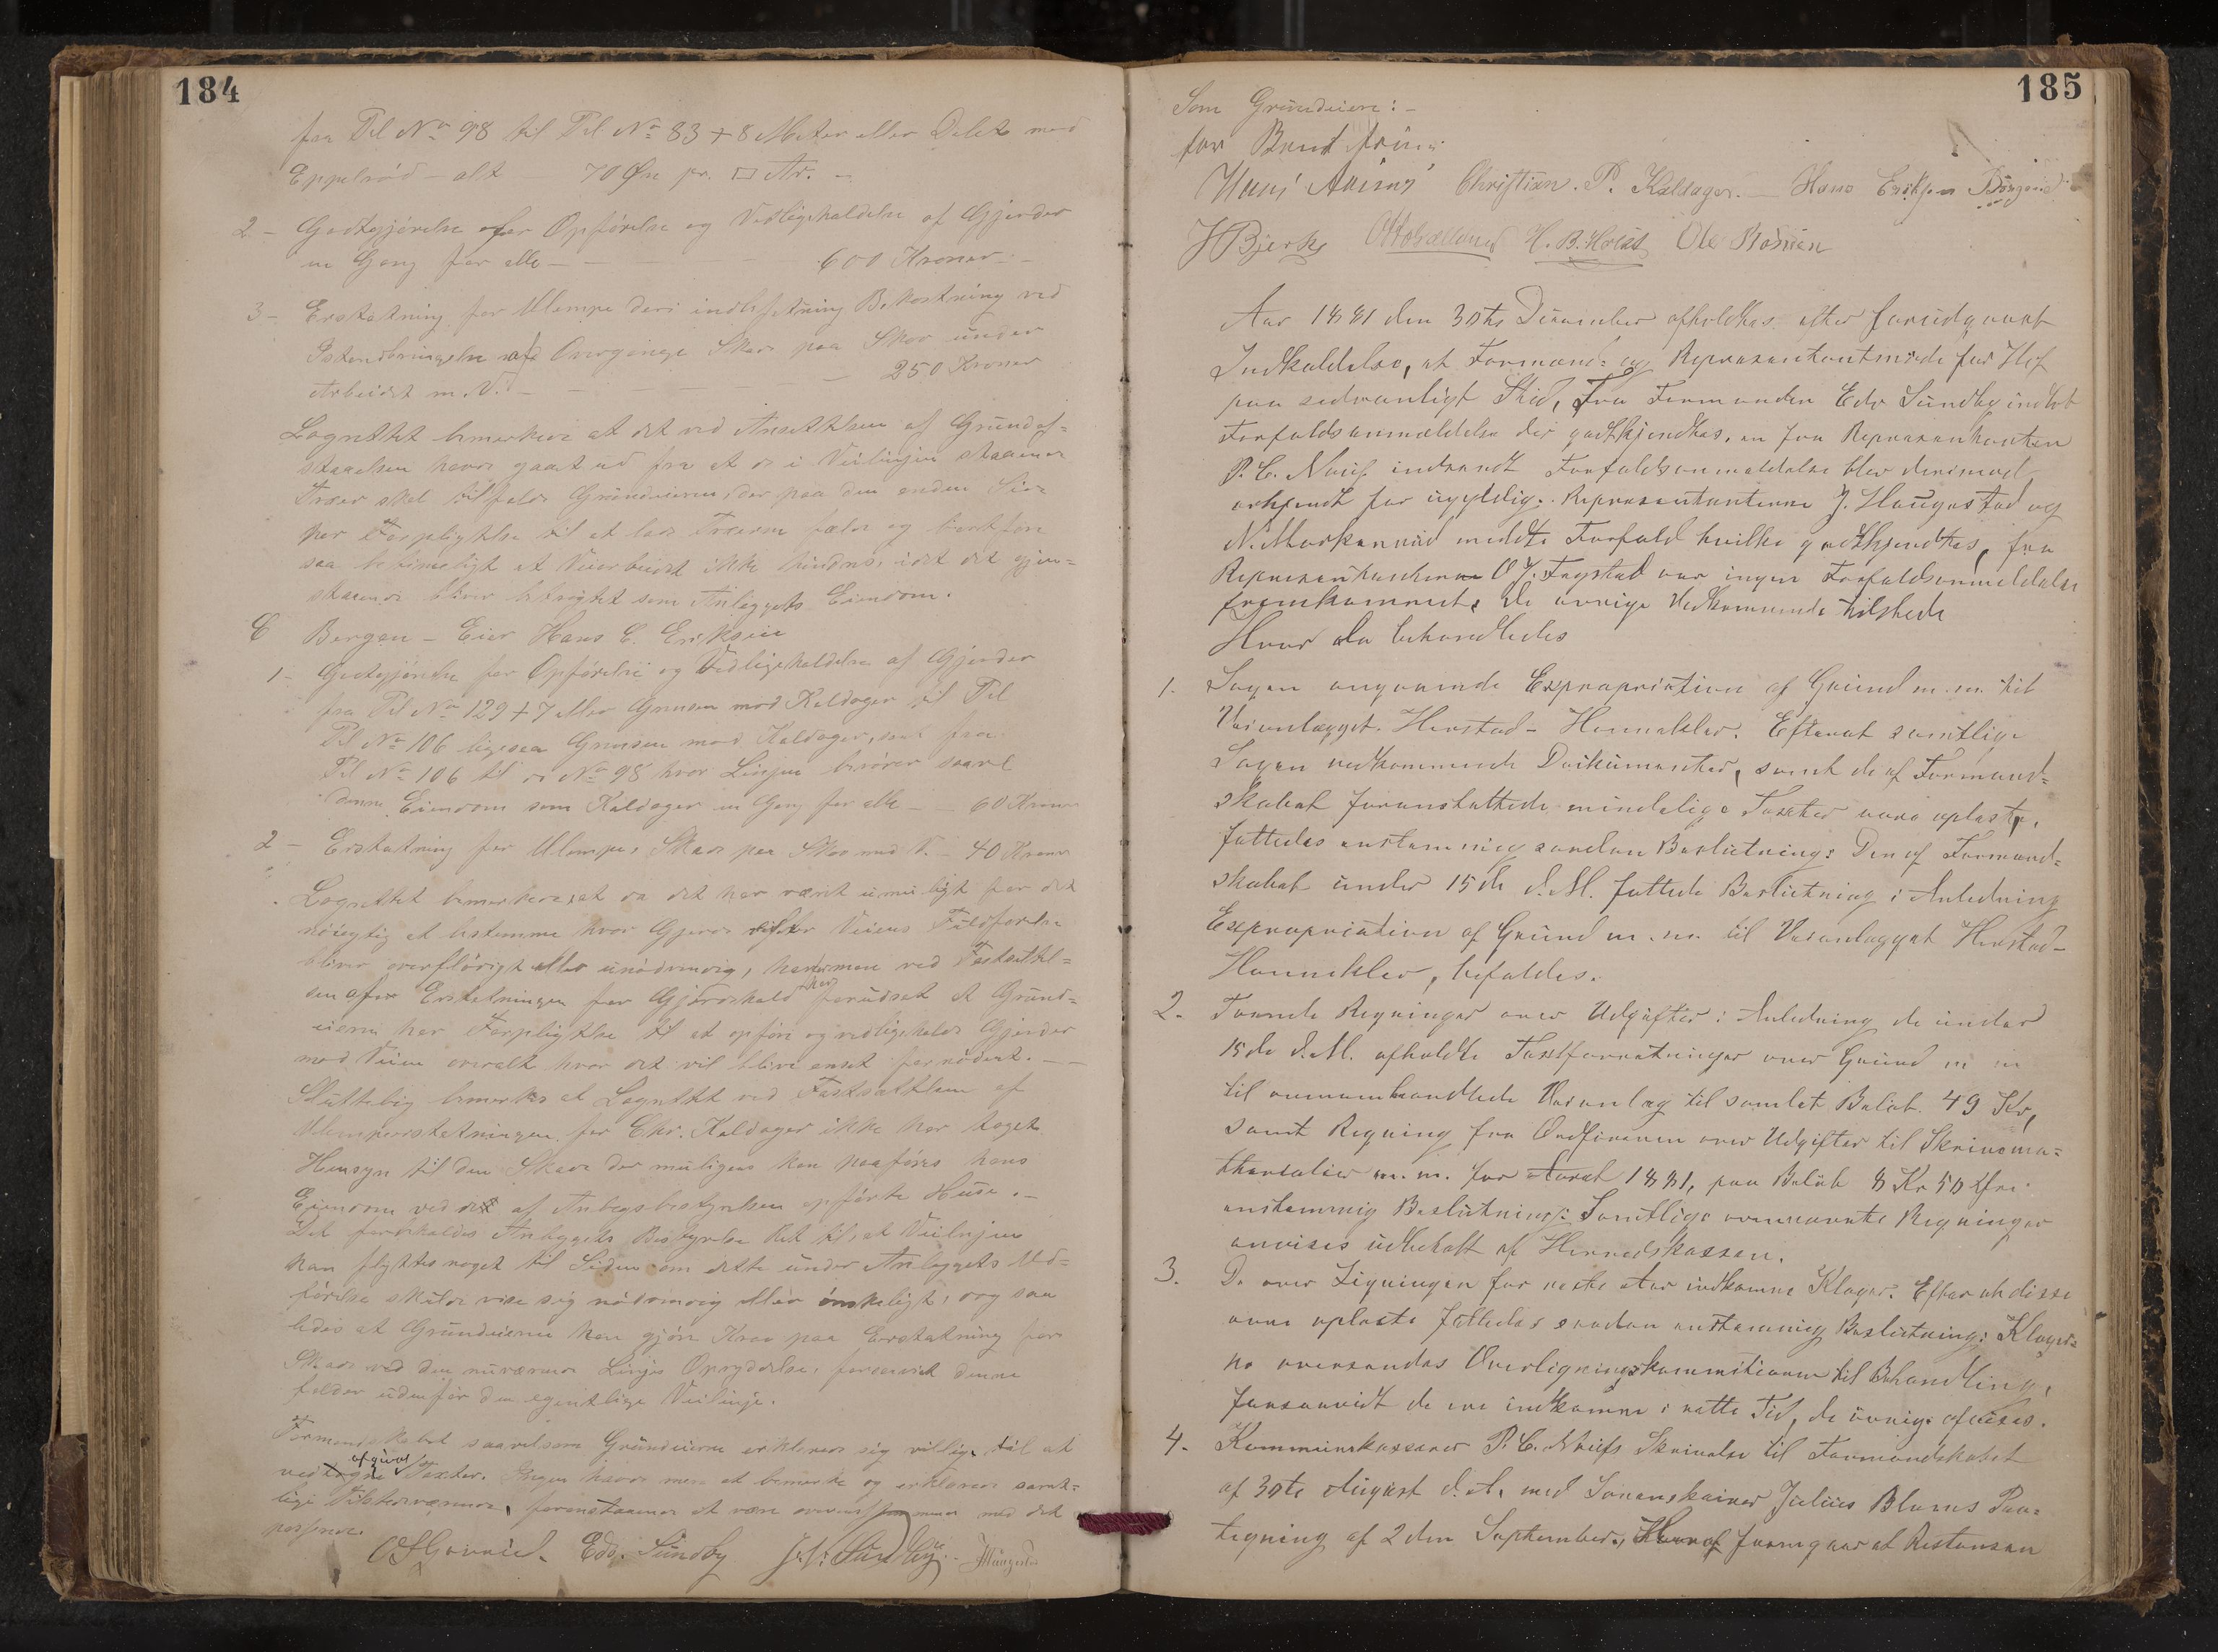 184
fra Pel No 98 til Pel No 83 + 8 Meter eller Delet med
Eppelrød – alt – 70 Øre pr. □ Al. –
2 – Godtgjørelse for Opførelse og Vedligeholdelse af Gjerder
en Gang for alle – – 600 Kroner –
3 – Erstatning for Ulempe deri indbefatning Bekostning ved
Istandbringelse af Overgange Skade paa Skov under
Arbeidet m. V. – – – 250 Kroner
Lagrettet bemærkede at det ved Ansættelsen af Grundaf=
staaelsen havde gaaet ud fra at de i Veilinjen staaende
Træer skal tilfalde Grundeierne, der paa den anden Side
har Forpligtelse til at lade Træerne fælde og bortføre
saa betimeligt at Veiarbeidet ikke hindres, idet det gjen=
staaende bliver betragtet som Anlæggets Eiendom.
C Bergan – Eier Hans C. Eriksen
1 – Godtgjørelse for Opførelse og Vedligeholdelse af Gjerder
fra Pel No 129 + 7 eller Grænsen mod Kaldager til Pel
Pel No 106 ligesaa Grænsen mod Kaldager, samt fra
Pel No 106 til No 98 hvor Linjen berører saavel
denne Eiendom som Kaldager en Gang for alle – – 60 Kroner
2 – Erstatning for Ulempe, Skade paa Skov med V. – 40 Kroner
Lagrettet bemærkede, at da det har været umuligt for det
nøiagtig at bestemme hvor Gjerde efter Veiens Fuldførelse
bliver overflødigt eller unødvendig, har man ved Fastsættel=
sen af Erstatningen for Gjerdehold har forudsat at Grund=
eierne har Forpligtelse til at opføre og vedligeholde Gjerder
mod Veien overalt hvor det vil blive anset fornødent. – –
Sluttelig bemærkes at Lagrettet ved Fastsættelsen af
Ulempeerstatningen for Chr. Kaldager ikke har taget
Hensyn til den Skade der muligens kan paaføres hans
Eiendom ved det af Anlægsbestyrelsen opførte Huse. –
Det forbeholdes Anlæggets Bestyrelse Ret til, at Veilinjen
kan flyttes noget til Siden om dette under Anlæggets Ud=
førelse skulde vise sig nødvendig eller ønskeligt, dog saa
ledes at Grundeierne kan gjøre Krav paa Erstatning for
Skade ved den nuværende Linjes Oprydelse, forsaavidt denne
falder udenfor den egentlige Veilinje.
Formandskabet saavelsom Grundeierne erklærede sig villige til at
vedtage afgivne Taxter. Ingen havde mere at bemærke og erklærede samt=
lige Tilstedeværende, foranstaaende at være overensstemmende med det
passerede.
Edv. Sundby
185
Som Grundeiere: –
for Bent
Christian. P. Kaldager. – Hans Eriksen
J Bjerke H. B. Holst Ole
Aar 1881 den 30te December afholdtes efter forudgaaet
Indkaldelse, et Formands= og Repræsentantmøde for Hof
paa sedvanligt Sted, Fra Formanden Edv Sundby indløb
Forfaldsanmeldelse der godkjendtes, en fra Repræsentanten
P. C. Næss indsendt Forfaldsanmeldelse blev derimod
erkjendt for ugyldig. Repræsentanterne J. Haugestad og
N. Markerud meldte Forfald hvilke godkjendtes, fra
Repræsentanten O J. Fagstad var ingen Forfaldsanmeldelse
fremkommet, de øvrige Vedkommende tilstede
Hvor da behandledes
1. Sagen angaaende Expropriation af Grund m. m. til
Veianlægget Herstad – Hanneklev. Efterat samtlige
Sagen vedkommende Dokumenter, samt de af Formand=
skabet foranstaltede mindelige Taxter vare oplæste,
fattedes enstemmig saadan Beslutning: Den af Formand=
skabet under 15de d. M. fattede Beslutning i Anledning
Expropriation af Grund m. m. til Veianlægget Herstad –
Hanneklev, bifaldes.
2. Tvende Regninger over Udgifter i Anledning de under
15de d. M. afholdte Taxtforretninger over Grund m m
til ovenomhandlede Veianlæg til samlet Beløb 49 Kr,
samt Regning fra Ordføreren over Udgifter til Skrivema=
therialier m. m. for Aaret 1881, paa Beløb 8 Kr 50 Øre
enstemmig Beslutning: Samtlige ovennævnte Regninger
anvises udbetalt af Herredskassen.
3. De over Ligningen for næste Aar indkomne Klager. Efter at disse
vare oplæste fattedes saadan enstemmig Beslutning: Klager=
ne oversendes Overligningskommissionen til Behandling,
forsaavidt de ere indkomne i rette Tid, de øvrige afvises.
4. Kommunekasserer P. C. Næss Skrivelse til Formandskabet
af 30te August d. A. med Sorenskriver Julius Blums Paa=
tegning af 2den September, Hvoraf fremgaar at Restansen